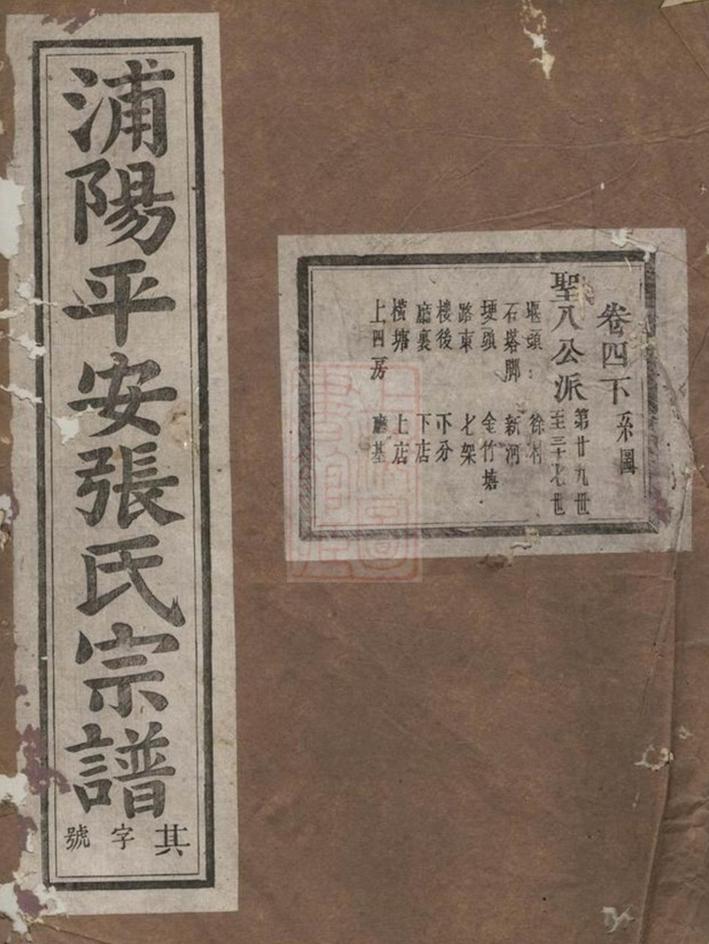 浦陽平安張氏宗譜
其字號
卷四下 系圖
聖八公派 第廿九世
至三十七世
堰頭 徐村
石塔脚 新河
埂頭 金竹塘
路東 七架
樓後 下分
廳裏 下店
橫塘 上店
上四房 廳基